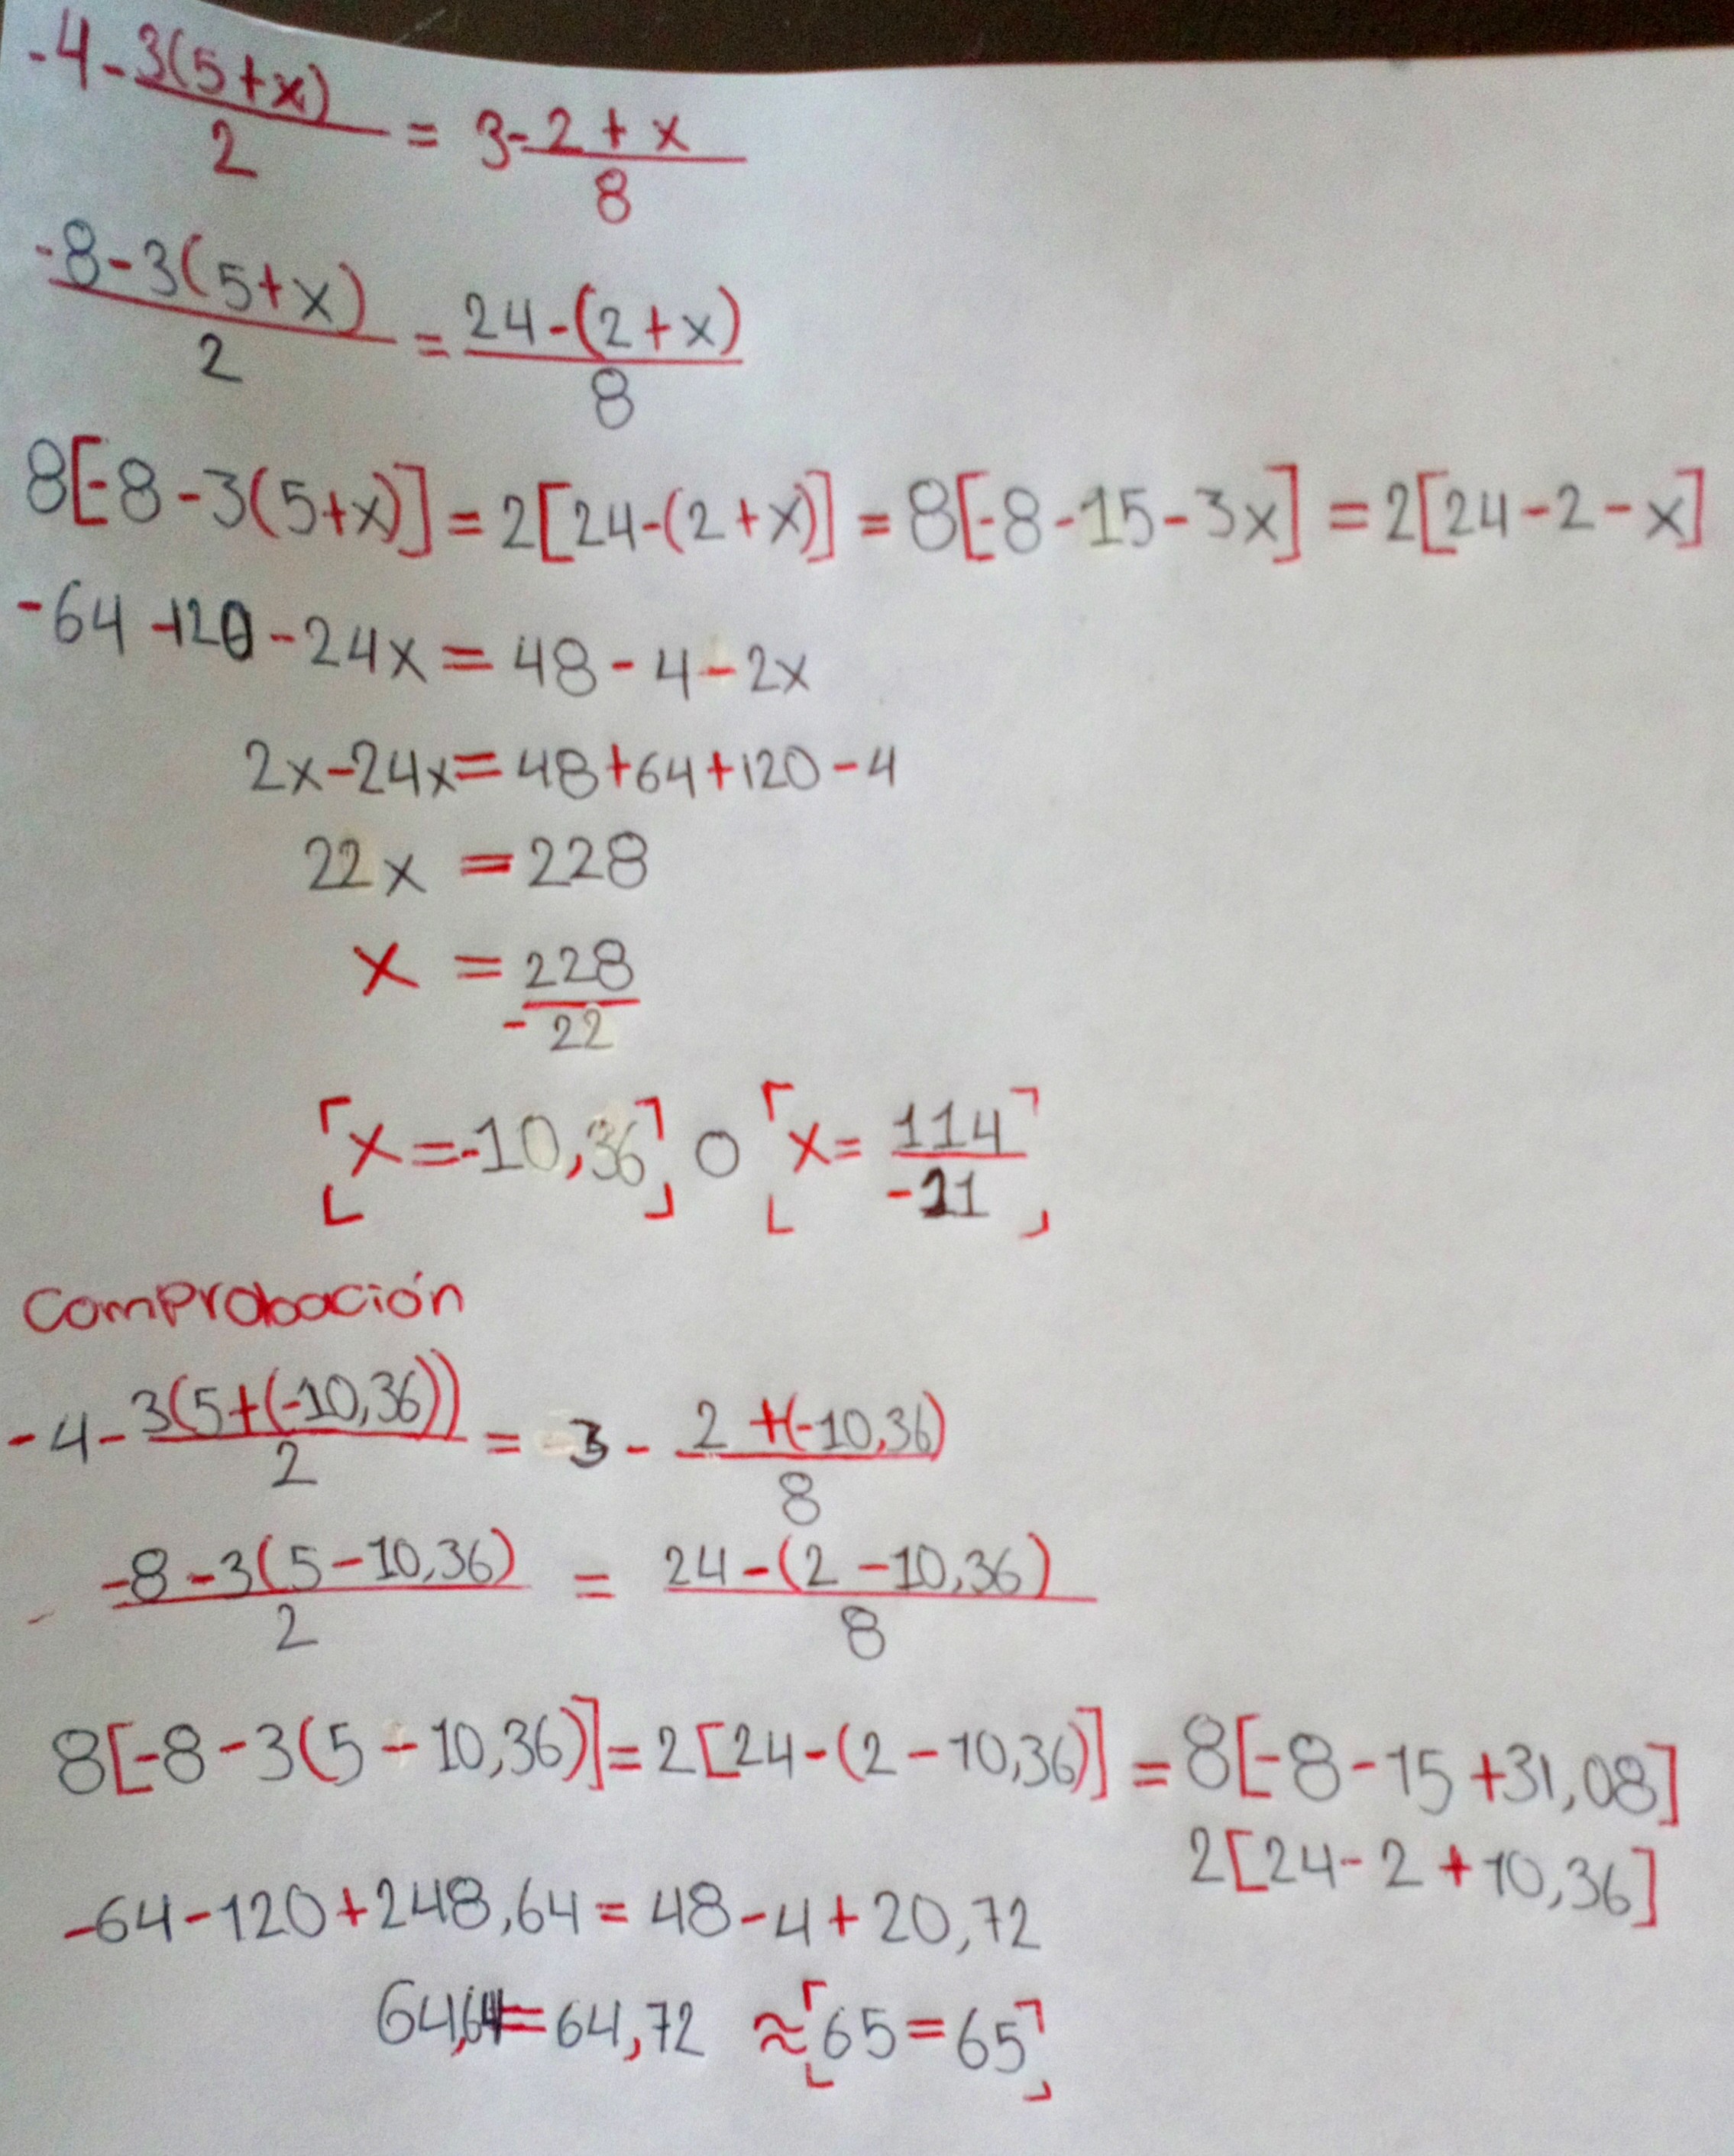 -4-3(5+x)/2 = 3-2+x/8
-8-3(5+x)/2 = 24-(2+x)/8
8[-8-3(5+x)]=2[24-(2+x)]=8[-8-15-3x]=2[24-2-x]
-64-120-24x=48-4-2x
2x-24x=48+64+120-4
22x=228
x=228/-22
[x=-10,36] o [x=114/-21]
Comprobación
-4-3(5+(-10,36))/2 = 3-2+(-10,36)/8
-8-3(5-10,36)/2 = 24-(2-10,36)/8
8[-8-3(5-10,36)]=2[24-(2-10,36)]=8[-8-15+31,08]
2[24-2+10,36]
-64-120+248,64=48-4+20,72
64,64=64,72 ≈[65=65]